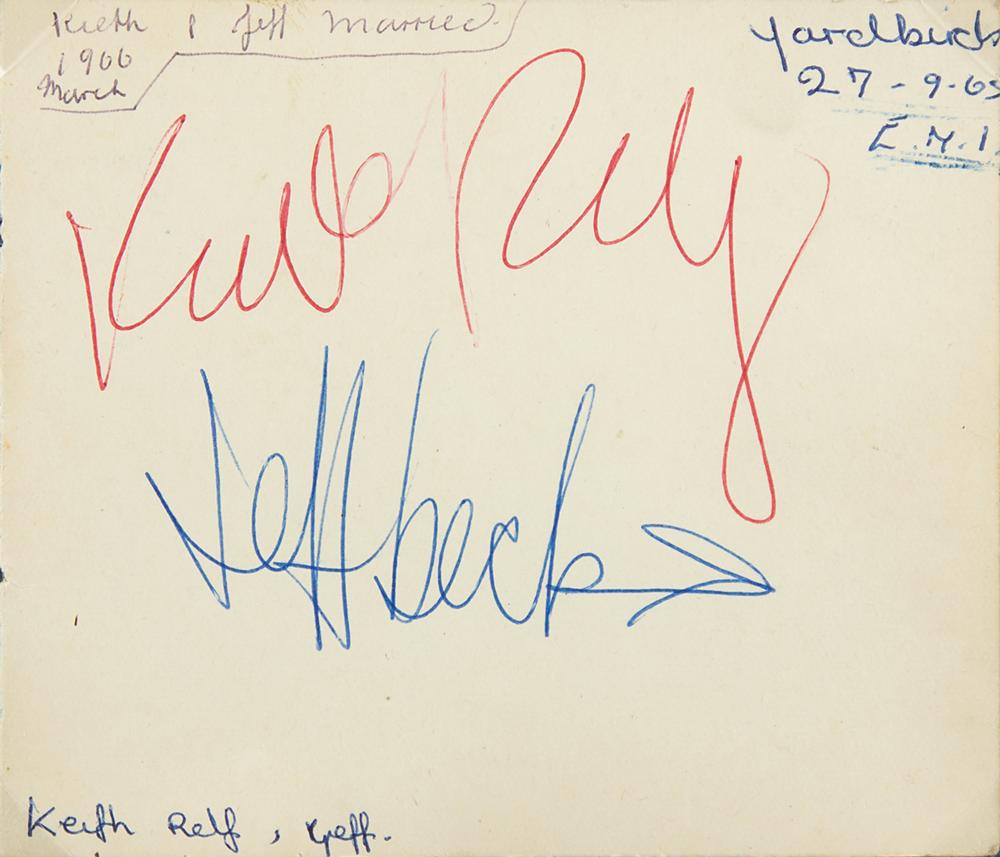 Kieth & Jeff married.
1966
March
Yardbirds
27-9-65
E.M.I.
Keith Relf
Jeff beck
Keith Relf, Jeff.